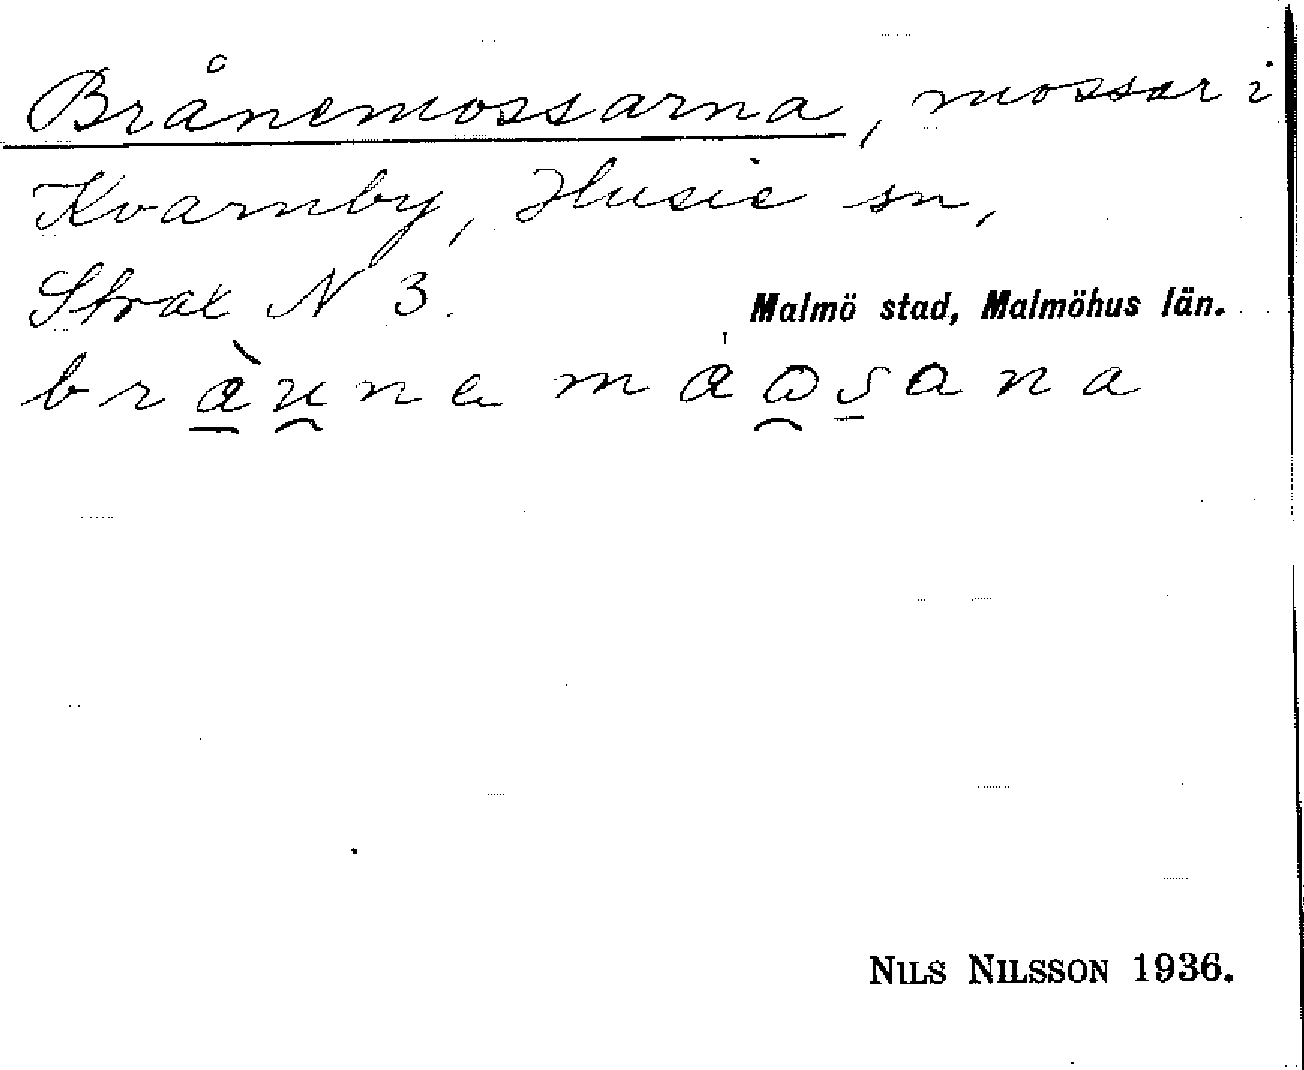 Brånemossarna, mossar i
Kvarnby, Husie sn,
Strax N 3.
Malmö stad, Malmöhus län.
NILS NILSSON 1936.